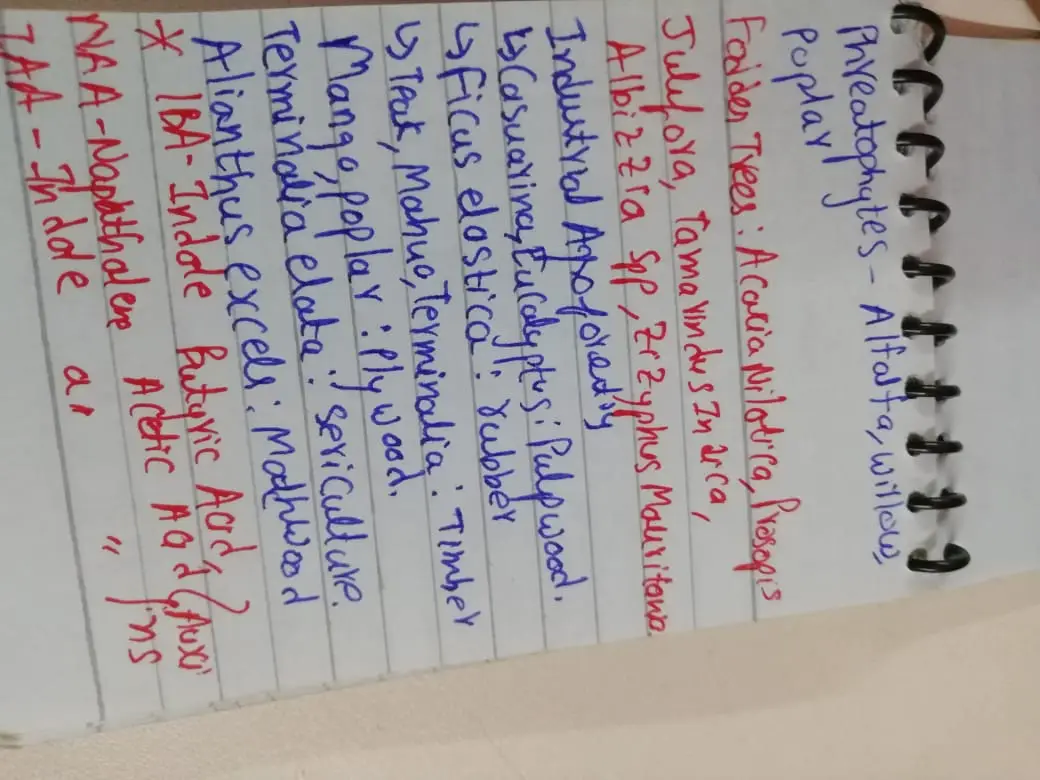 Phreatophytes - Alfalfa, willow,
Poplar
Fodder Trees: Acacia Nilotica, Prosopis
Julifora, Tamarindus Indica,
Albizzia Spp, Zizyphus Mauritana
Industrial Agroforestry
↳ Casuarina, Eucalyptus: Pulpwood.
↳ Ficus elastica: rubber
↳ Teak, Mahua, Terminalia: Timber
Mango, poplar: Plywood.
Terminalia elata: sericulture.
Alianthus excels: Matchwood
* IBA - Indole Butyric Acid
NAA - Naphthalene Acetic Acid } Auxins
IAA - Indole a, "